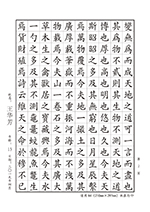 變無為而成天地之道可一言而盡也
其為物不貳則其生物不測天地之道
博也厚也高也明也悠也久也今夫天
斯昭昭之多及其無窮也日月星辰繫
焉萬物覆焉今夫地一撮土之多及其
廣厚載華嶽而不重振河海而不洩萬
物載焉今夫山一卷石之多及其廣大
草木生之禽獸居之寶藏興焉今夫水
一勺之多及其不測黿鼉蛟龍魚鱉生
焉貨財殖焉詩云維天之命於穆不已